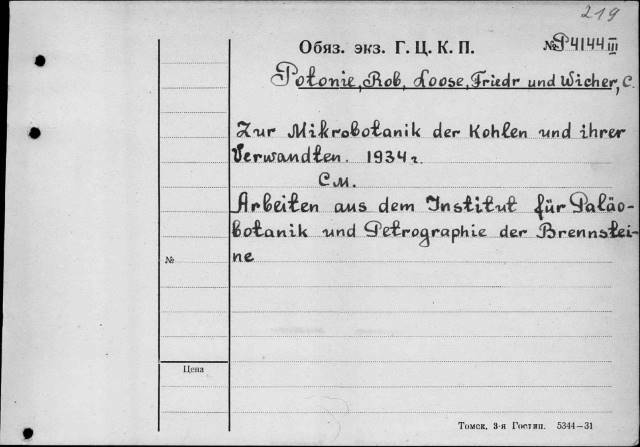 219
Обяз. экз. Г. Ц. К. П. №P4144 III
Potonie, Rob, Loose, Friedr und Wicher, C.
Zur Mikrobotanik der Kohlen und ihrer
Verwandten. 1934 г.
См.
Arbeiten aus dem Institut für Paläo-
botanik und Petrographie der Brennstei-
ne
№
Цена
Томск. 3-я Гостип. 5344—31